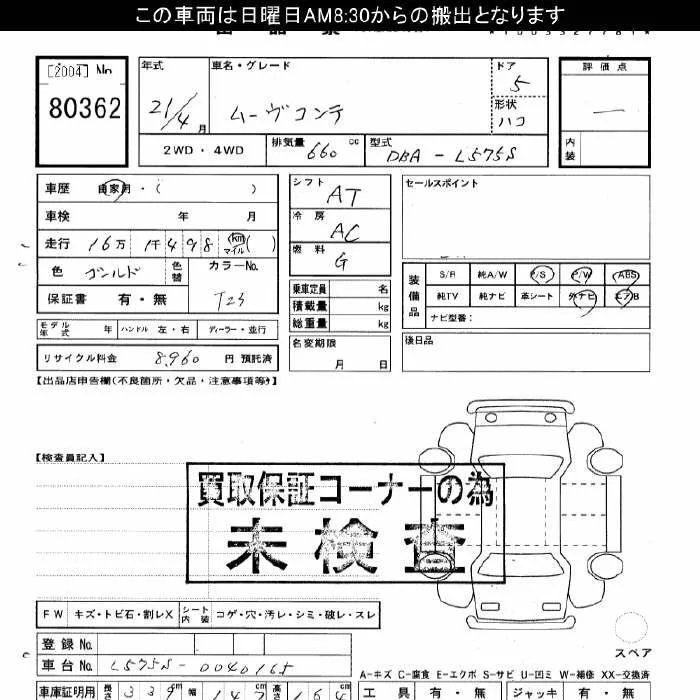 この車両は日曜日AM8:30からの搬出となります
[2004] No
80362
年式
21/4月
車名・グレード
ムーヴコンテ
ドア
5
形状
ハコ
評価点
内装
2WD・4WD
排気量 660 cc
型式 DBA-L575S
車歴 自家用・( )
車検 年 月
走行 16万 1千498 km マイル( )
色 ゴールド 色替
カラーNo. T23
保証書 有・無
モデル年式 年 ハンドル 左・右 ディーラー・並行
リサイクル料金 8,960 円 預託済
シフト AT
冷房 AC
燃料 G
乗車定員 名
積載量 kg
総重量 kg
名変期限
月 日
セールスポイント
装備品
S/R 純A/W P/S P/W ABS
純TV 純ナビ 革シート 外ナビ エアB
ナビ型番:
後日品
【出品店申告欄(不良箇所・欠品・注意事項等)】
【検査員記入】
買取保証コーナーの為
未検査
FW キズ・トビ石・割レX シート内装 コゲ・穴・汚レ・シミ・破レ・スレ
登録No.
車台No. L575S-0040165
スペア
A-キズ C-腐食 E-エクボ S-サビ U-凹ミ W-補修 XX-交換済
車庫証明用 長さ 339 幅 147 高さ 164
工具 有・無 ジャッキ 有・無